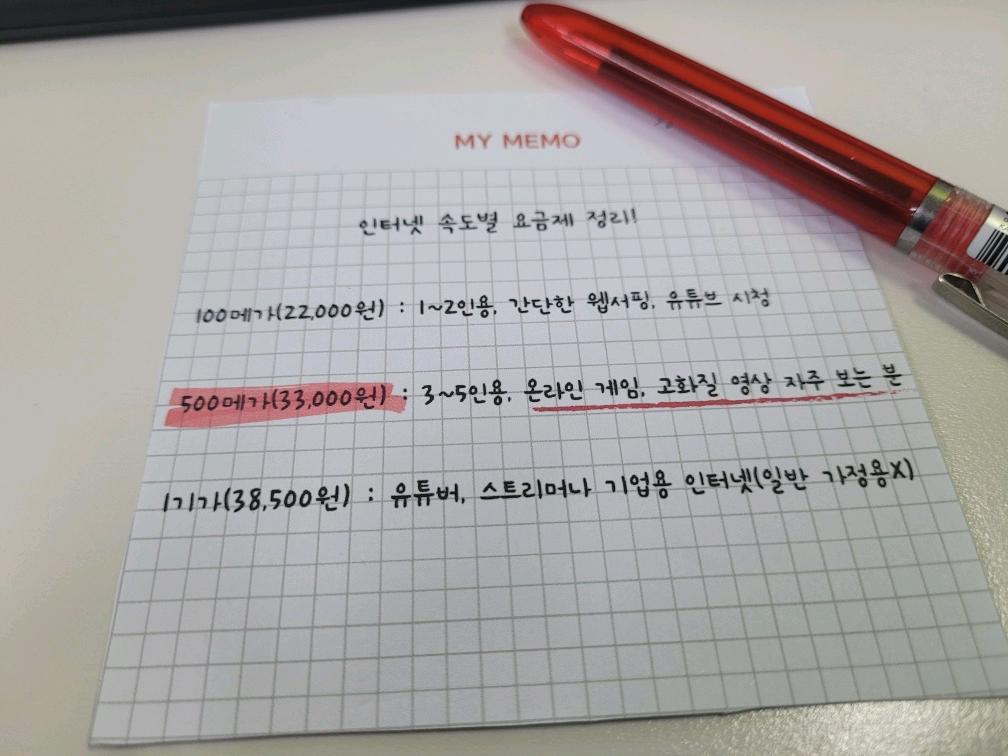 MY MEMO
인터넷 속도별 요금제 정리!
100메가(22,000원) : 1~2인용, 간단한 웹서핑, 유튜브 시청
500메가(33,000원) : 3~5인용, 온라인 게임, 고화질 영상 자주 보는 분
1기가(38,500원) : 유튜버, 스트리머나 기업용 인터넷(일반 가정용X)